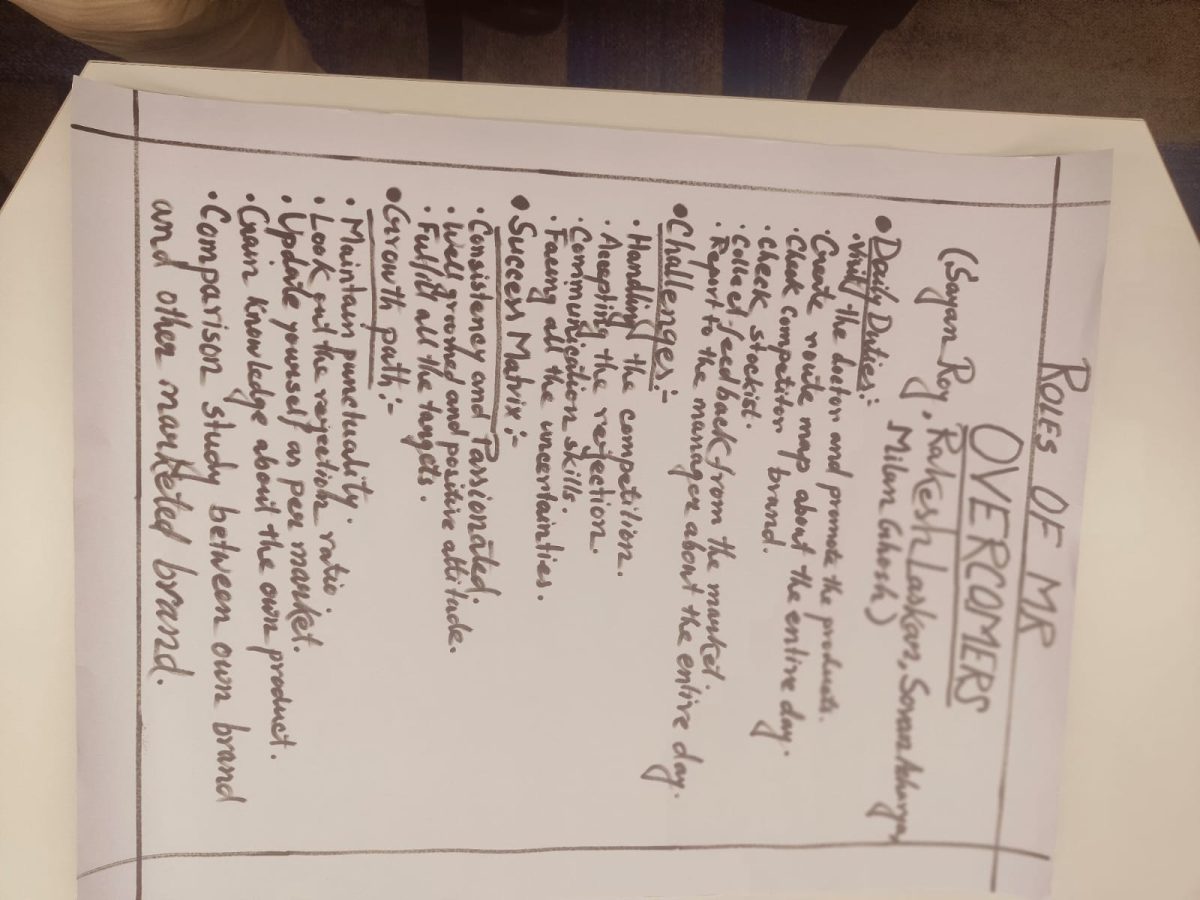 ROLES OF MR
OVERCOMERS
(Sayan Roy, Rakesh Laskar, Sovan Acharya,
Milan Ghosh)
• Daily Duties:-
• Visit the doctor and promote the products.
• Create route map about the entire day.
• Check competitor brand.
• Check stockist.
• Collect feedback from the market.
• Report to the manager about the entire day.
• Challenges:-
• Handling the competition.
• Accepting the rejection.
• Communication skills.
• Facing all the uncertainties.
• Success Matrix:-
• Consistency and Passionated.
• Well groomed and positive attitude.
• Fulfill all the targets.
• Growth path:-
• Maintain punctuality.
• Look out the rejection ratio.
• Update yourself as per market.
• Gain knowledge about the own product.
• Comparison study between own brand
and other marketed brand.